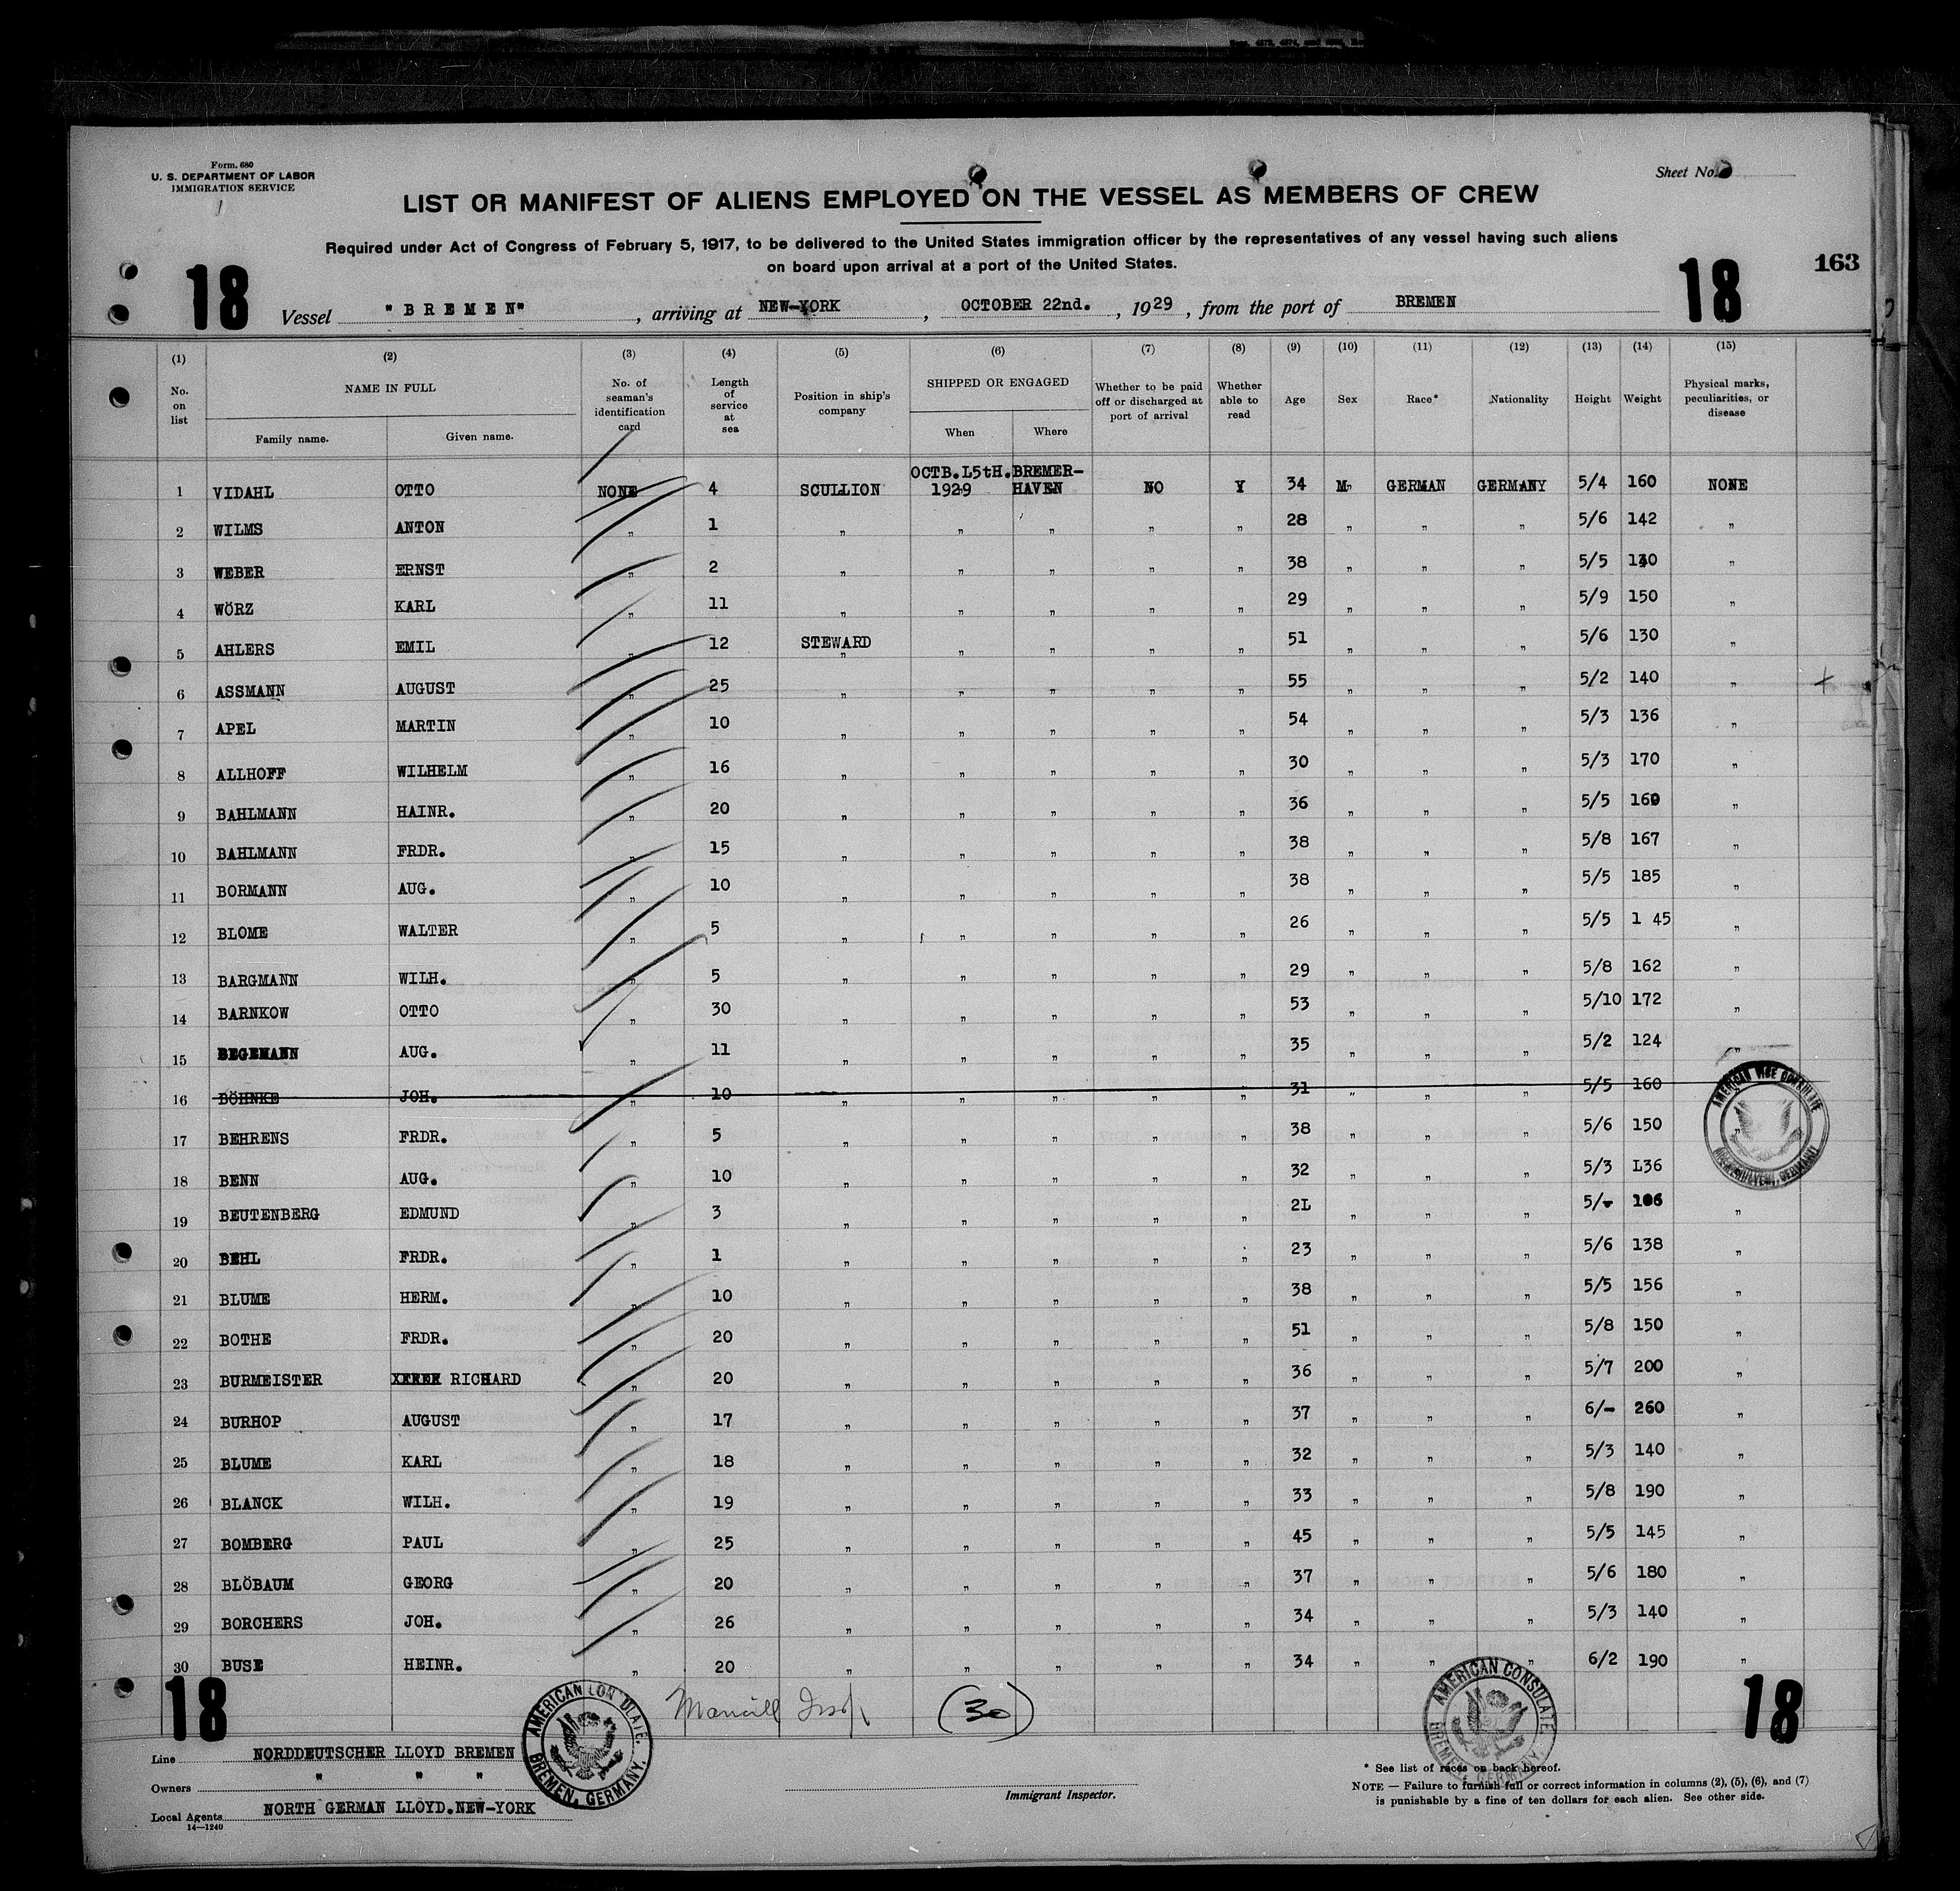 Form. 680
U. S. DEPARTMENT OF LABOR
IMMIGRATION SERVICE
Sheet No.
LIST OR MANIFEST OF ALIENS EMPLOYED ON THE VESSEL AS MEMBERS OF CREW
Required under Act of Congress of February 5, 1917, to be delivered to the United States immigration officer by the representatives of any vessel having such aliens
on board upon arrival at a port of the United States.
18 18 163
Vessel "BREMEN", arriving at NEW-YORK, OCTOBER 22nd., 1929, from the port of BREMEN
(1) (2) (3) (4) (5) (6) (7) (8) (9) (10) (11) (12) (13) (14) (15)
No. on list NAME IN FULL Family name. Given name. No. of seaman's identification card Length of service at sea Position in ship's company SHIPPED OR ENGAGED When Where Whether to be paid off or discharged at port of arrival Whether able to read Age Sex Race* Nationality Height Weight Physical marks, peculiarities, or disease
1 VIDAHL OTTO NONE 4 SCULLION OCTB.L5tH. 1929 BREMER-HAVEN NO Y 34 M GERMAN GERMANY 5/4 160 NONE
2 WILMS ANTON " 1 " " " " " 28 " " " 5/6 142 "
3 WEBER ERNST " 2 " " " " " 38 " " " 5/5 "
4 WÖRZ KARL " 11 " " " " " 29 " " " 5/9 150 "
5 AHLERS EMIL " 12 STEWARD " " " " " 51 " " " 5/6 130 "
6 ASSMANN AUGUST " 25 " " " " " 55 " " " 5/2 140 "
7 APEL MARTIN " 10 " " " " " 54 " " " 5/3 136 "
8 ALLHOFF WILHELM " 16 " " " " " 30 " " " 5/3 170 "
9 BAHLMANN HAINR. " 20 " " " " " 36 " " " 5/5 160 "
10 BAHLMANN FRDR. " 15 " " " " " 38 " " " 5/8 167 "
11 BORMANN AUG. " 10 " " " " " 38 " " " 5/5 185 "
12 BLOME WALTER " 5 " " " " " 26 " " " 5/5 1 45 "
13 BARGMANN WILH. " 5 " " " " " 29 " " " 5/8 162 "
14 BARNKOW OTTO " 30 " " " " " 53 " " " 5/10 172 "
15 BEGEMANN AUG. " 11 " " " " " 35 " " " 5/2 124 "
16 BÖHNKE JOH. " 10 " " " " " 31 " " " 5/5 160
17 BEHRENS FRDR. " 5 " " " " " 38 " " " 5/6 150 "
18 BENN AUG. " 10 " " " " " 32 " " " 5/3 L36
19 BEUTENBERG EDMUND " 3 " " " " " 2L " " " 5/- 106 "
20 BEHL FRDR. " 1 " " " " " 23 " " " 5/6 138 "
21 BLUME HERM. " 10 " " " " " 38 " " " 5/5 156 "
22 BOTHE FRDR. " 20 " " " " " 51 " " " 5/8 150 "
23 BURMEISTER RICHARD " 20 " " " " " 36 " " " 5/7 200 "
24 BURHOP AUGUST " 17 " " " " " 37 " " " 6/- 260 "
25 BLUME KARL " 18 " " " " " 32 " " " 5/3 140 "
26 BLANCK WILH. " 19 " " " " " 33 " " " 5/8 190 "
27 BOMBERG PAUL " 25 " " " " " 45 " " " 5/5 145 "
28 BLÖBAUM GEORG " 20 " " " " " 37 " " " 5/6 180 "
29 BORCHERS JOH. " 26 " " " " " 34 " " " 5/3 140 "
30 BUSE HEINR. " 20 " " " " " 34 " " " 6/2 190 "
AMERICAN VICE CONSULATE
GERMANY
18 (30) 18
AMERICAN CONSULATE, BREMEN, GERMANY.
AMERICAN CONSULATE BREMEN, GERMANY.
Line NORDDEUTSCHER LLOYD BREMEN
Owners " " "
Local Agents NORTH GERMAN LLOYD.NEW-YORK
14—1240
Immigrant Inspector.
* See list of races on back hereof.
NOTE — Failure to furnish full or correct information in columns (2), (5), (6), and (7)
is punishable by a fine of ten dollars for each alien. See other side.